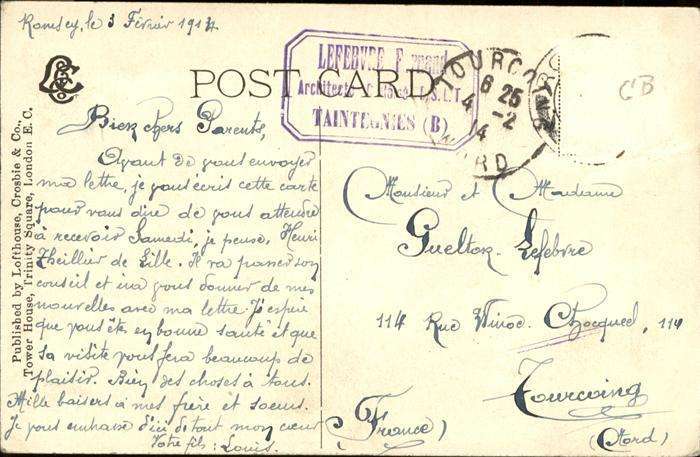 Ramsey, le 3 Février 1914
POST CARD
LEFEBVRE F
Architecte
TAINTEGNIES (B)
TOURCOING
6 25
4 -2
14
NORD
CB
Published by Lofthouse, Crosbie & Co.,
Tower House, Trinity Square, London E. C.
Bien chers Parents,
Avant de vous envoyer
ma lettre, je vous écris cette carte
pour vous dire de vous attendre
à recevoir Samedi, je pense, Henri
Theillier de Lille. Il va passer son
conseil et ira vous donner de mes
nouvelles avec ma lettre. J'espère
que vous êtes en bonne santé et que
sa visite vous fera beaucoup de
plaisir. Bien des choses à tous.
Mille baisers à mes frère et soeurs.
Je vous embrasse d'ici de tout mon coeur
Votre fils : Louis.
Monsieur et Madame
Gueltox-Lefebvre
114 Rue Winoc-Chocqueel, 114
Tourcoing
(France) (Nord)